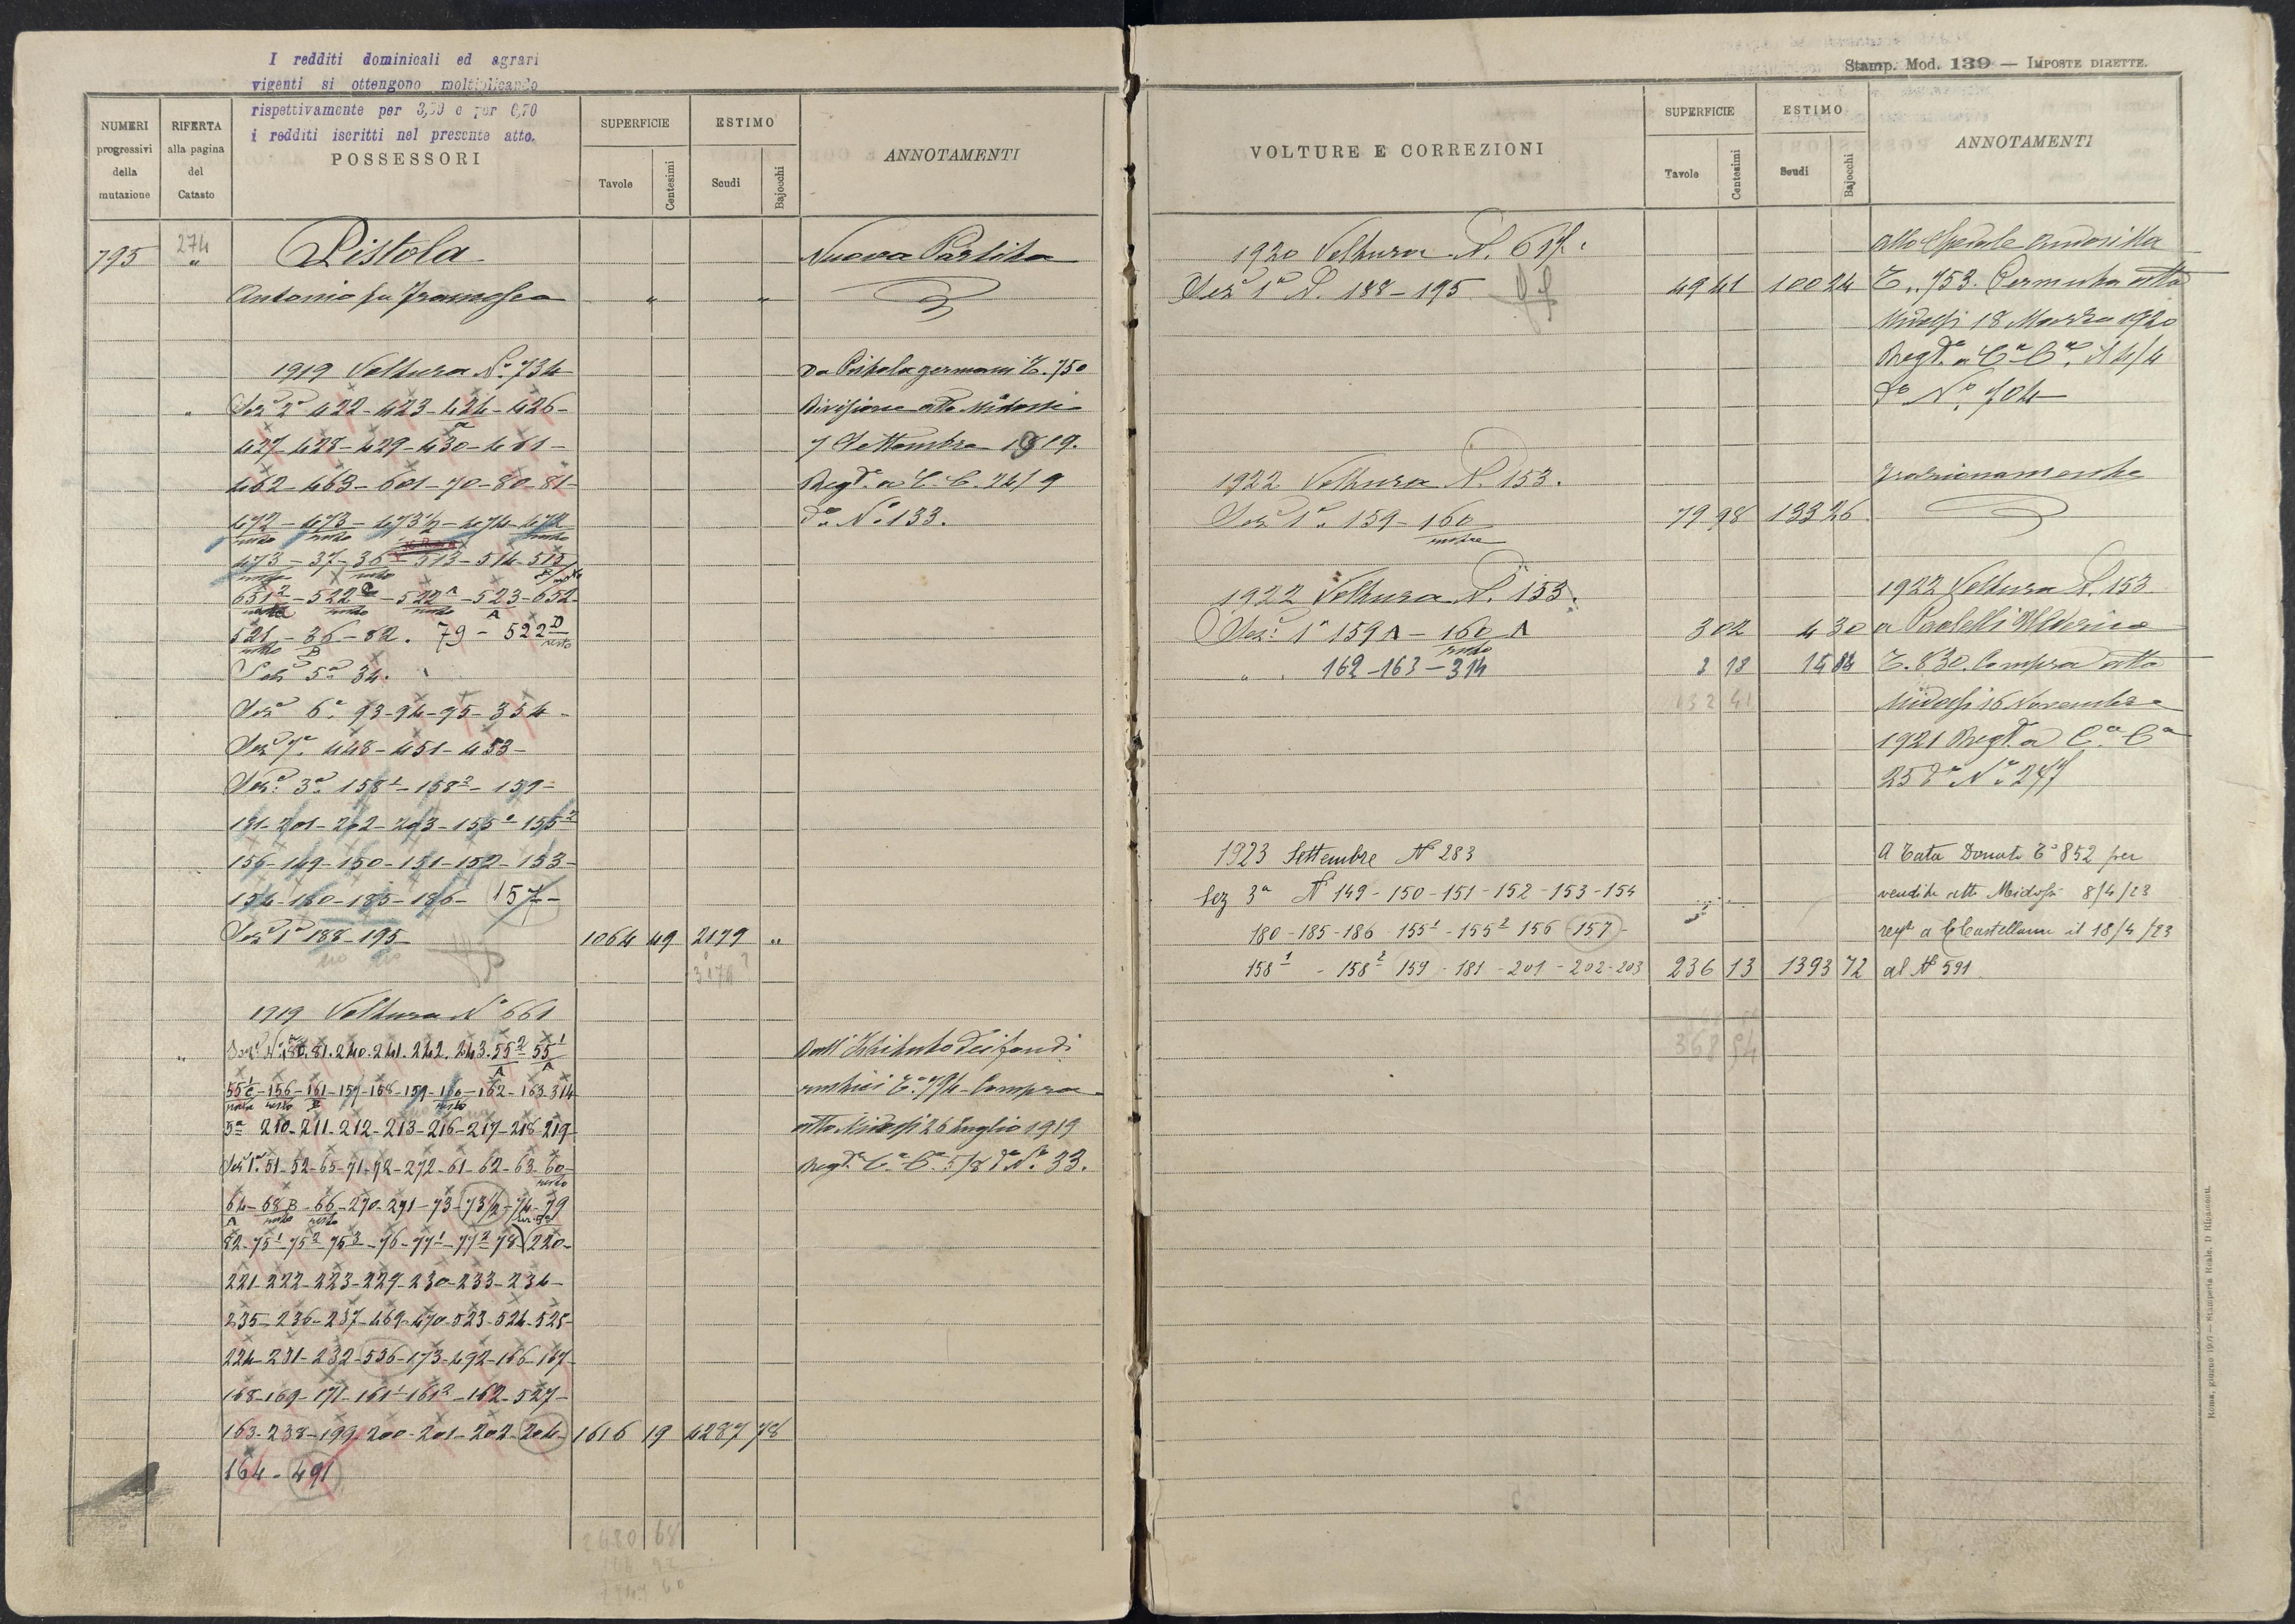 I redditi dominicali ed agrari
vigenti si ottengono moltiplicando
rispettivamente per 3,50 e per 0,70
i redditi iscritti nel presente atto.
NUMERI progressivi della mutazione
RIFERTA alla pagina del Catasto
POSSESSORI
SUPERFICIE
Tavole
Centesimi
ESTIMO
Scudi
Bajocchi
ANNOTAMENTI
795 274 Pistola Nuova Partita
" Antonio fu Francesco " "
1919 Voltura N.º 734 Da Pistola germani T. 750
Sezª 2ª 422-423-424-426- Divisione atto Midossi
427-428-429-430-461- 7 Settembre 1919.
462-463-601-70-80-81- Regtº a C. C. 24/9
472-473-473½-474-472 dº Nº 133.
473-37-36-513-514-515
651²-522-522ᴬ-523-652-
521-36-82. 79-522ᴰ
Sezª 5ª 34.
Sezª 6ª 93-94-95-354-
Sezª 7ª 448-451-453-
Sezª 3ª 158¹-158²-159-
181-201-202-203-155¹-155²
156-149-150-151-152-153-
154-180-185-186-157-
Sezª 1ª 188-195 1064 49 2179 "
1919 Voltura Nº 661
80.81.240.241.242.243.55²-55¹ Dall' Istituto dei fondi
156-161-157-158-159-160-162-163-314 rustici T. 794- Compra
3ª 210-211-212-213-216-217-218-219- atto Midossi 26 luglio 1919
Sezª 1ª 51-52-65-71-72-272-61-62-63-60- Regtº Cª Cª 5/8 dº Nº 33.
64-68B-66-270-271-73-73½-74-79
82-75¹-75²-75³-76-77¹-77²-78-220-
221-222-223-229-230-233-234-
235-236-237-469-470-523-524-525-
224-231-232-536-173-492-166-167-
168-169-171-161¹-161²-162-527-
163-238-199-200-201-202-204- 1616 19 4287 78
164-491
2680 68
Stamp. Mod. 139 — IMPOSTE DIRETTE.
VOLTURE E CORREZIONI
SUPERFICIE
Tavole
Centesimi
ESTIMO
Scudi
Bajocchi
ANNOTAMENTI
1920 Voltura N.
Sezª 1ª N. 188-195 49 41 100 24 T. 753. Permuta atto
Midossi 18 Marzo 1920
Regtº a Cª Cª il 4/4
dº Nº 704
1922 Voltura N. 153. Frazionamento
Sezª 1ª 159-160 79 98 133 26
1922 Voltura N. 153. 1922 Voltura N. 153
Sezª 1ª 159A-160A 3 02 4 30 a Fratelli
" 162-163-314 T. 830. Compra atto
132 41 Midossi 16 Novembre
1921 Regtº a Cª Cª
25 dº Nº 247
1923 Settembre Nº 283 A Tata Donato Tº 852 per
Sez 3ª Nº 149-150-151-152-153-154 vendita atto Midossi 8/4/23
180-185-186-155¹-155²-156 157- regtº a CCastellana il 18/4/23
158¹-158² 159-181-201-202-203 236 13 1393 72 al Nº 591
368 54
Roma, giugno 1907 — Stamperia Reale, D. Ripamonti.